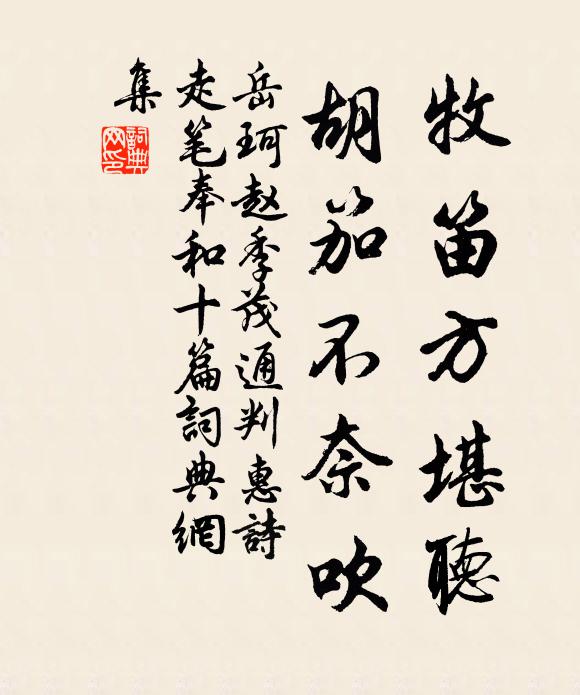 牧笛方堪聽
胡笳不奈吹
岳珂赵季茂通判惠詩
走笔奉和十篇詞典網
集
詞典网印